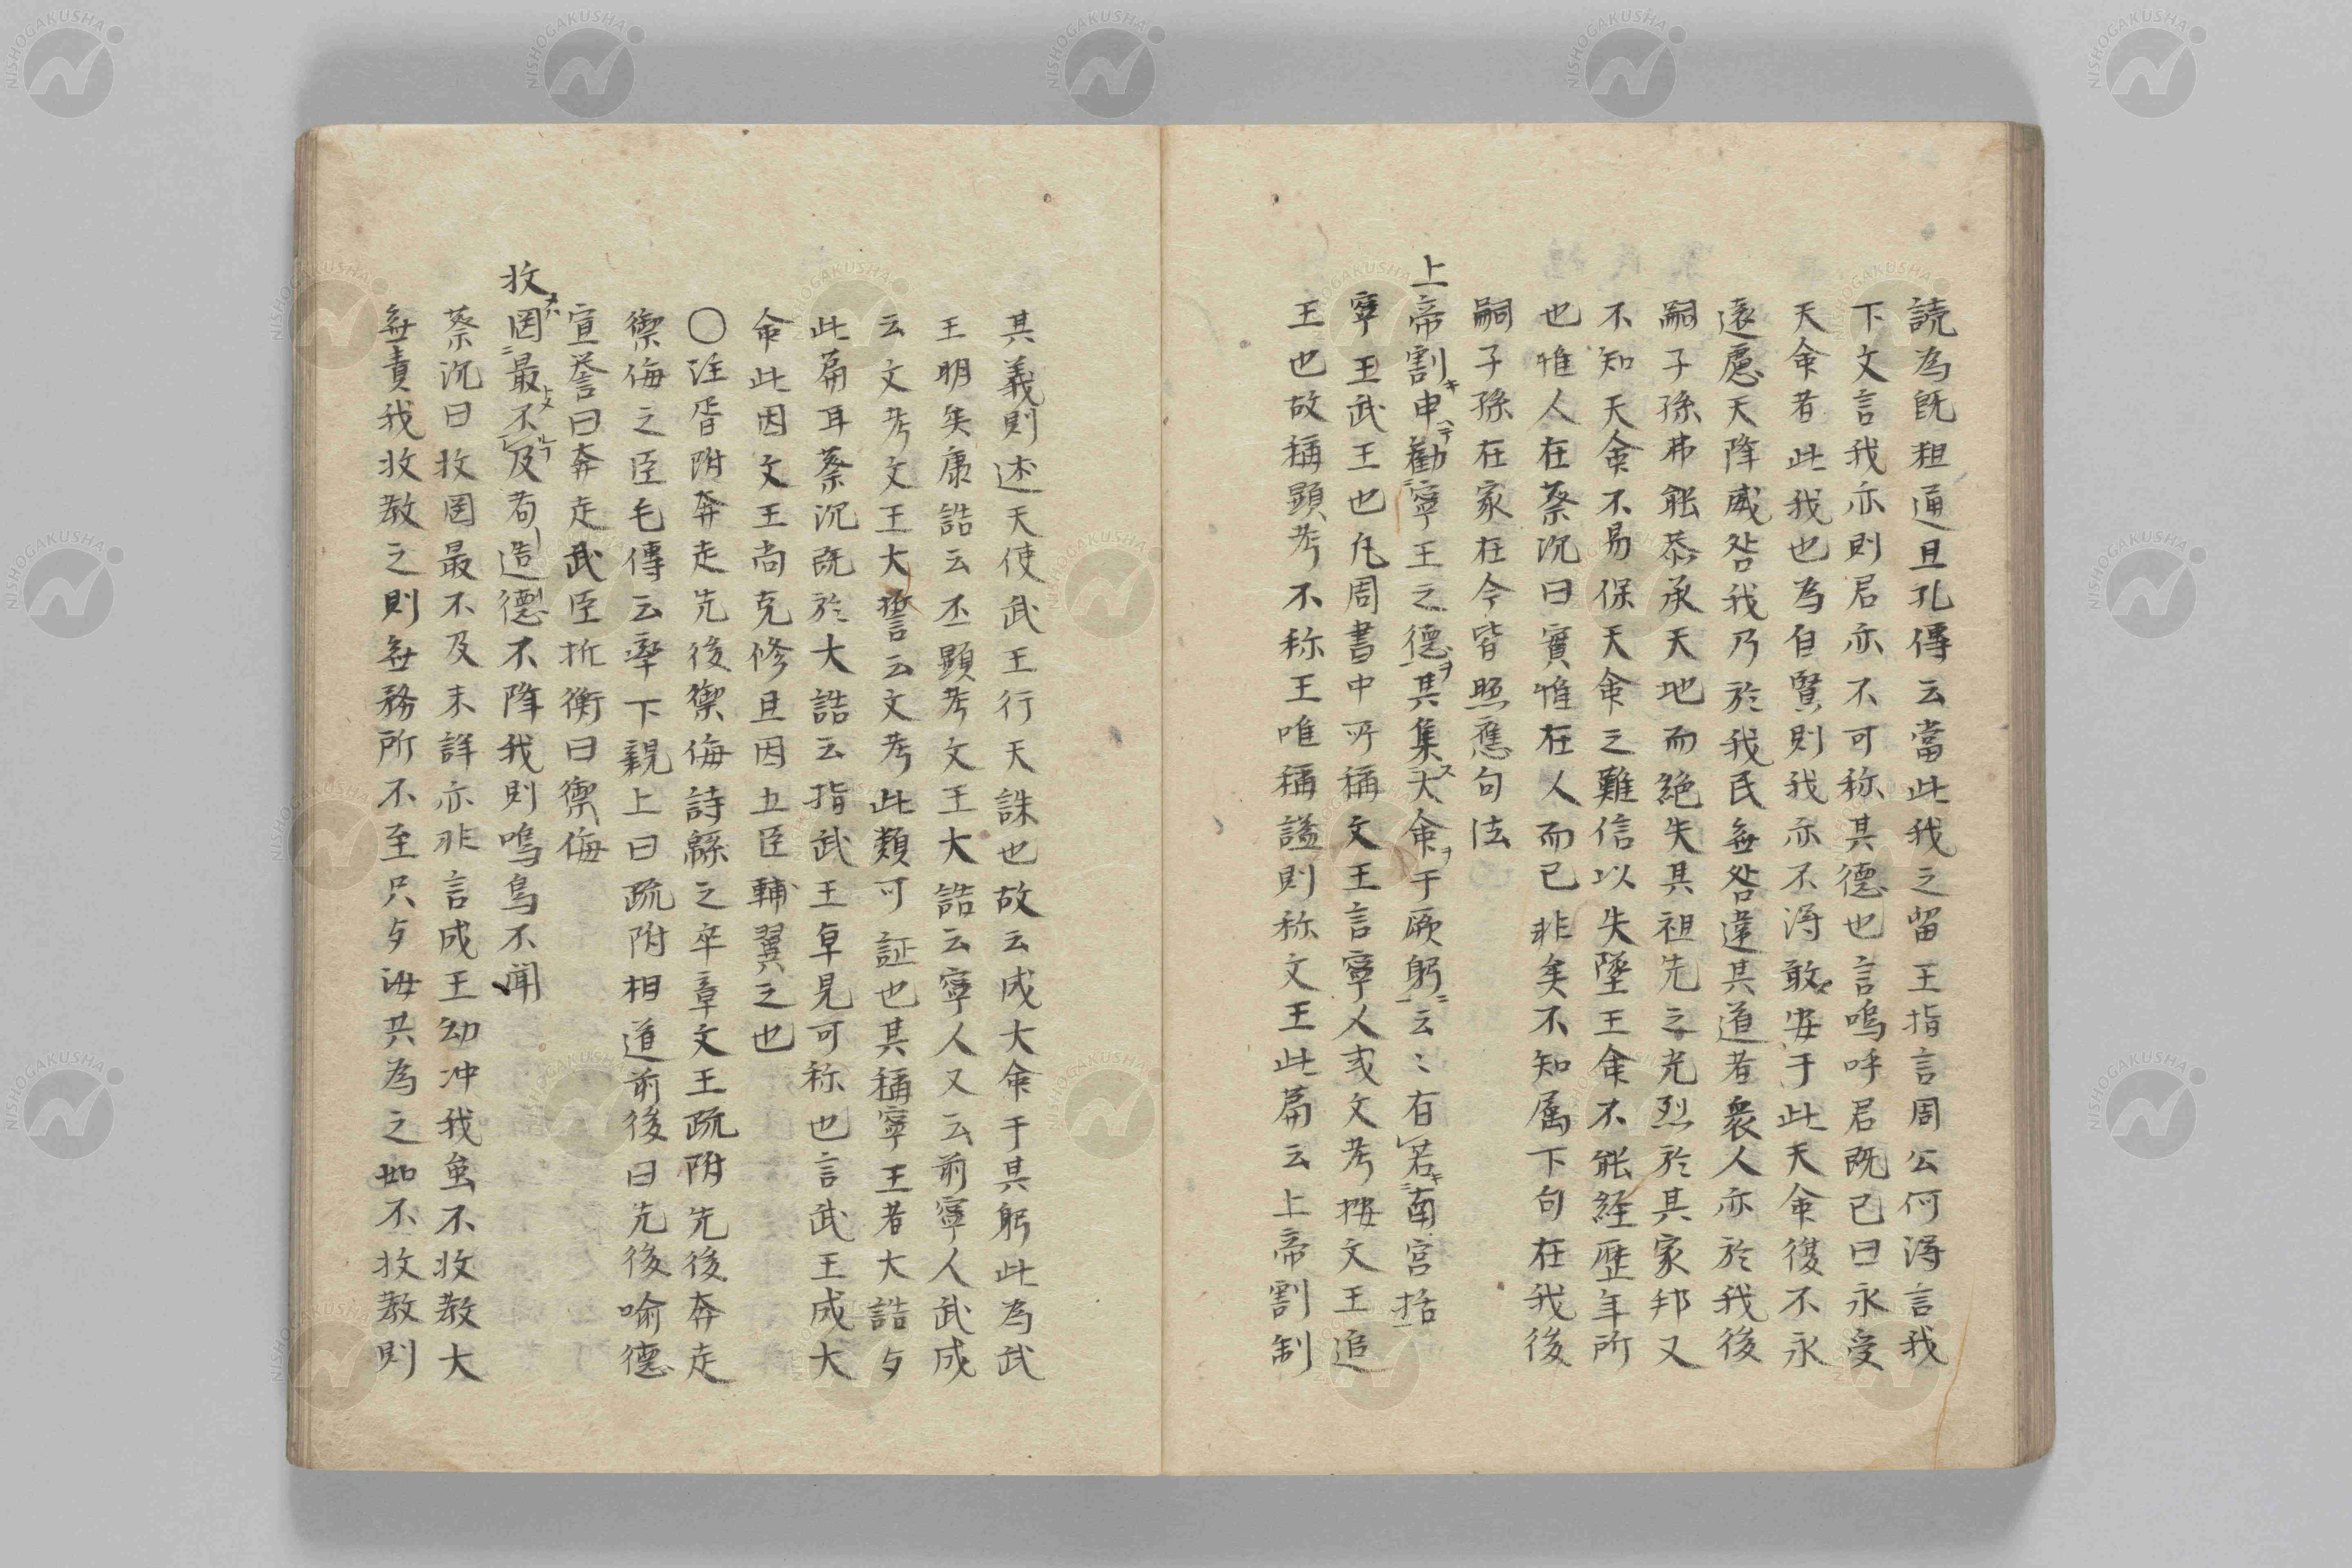 読為既粗通且孔傳云當此我之留王指言周公何淂言我
下文言我亦則君亦不可称其德也言嗚呼君既已曰永受
天命者此我也為自賢則我亦不淂敢安于此天命後不永
遠慮天降威咎我乃於我民無咎違其道者衆人亦於我後
嗣子孫弗能恭承天地而絶失其祖先之光烈於其家邦又
不知天命不易保天命之難信以失墜王命不能経歴年所
也惟人在蔡沉曰實惟在人而已非矣不知属下句在我後
嗣子孫在家在今皆照應句法
上帝割申勸寧王之德其集大命于厥躬云〻有若南宮括
寧王武王也凡周書中所稱文王言寧人或文考按文王追
王也故稱顕考不称王唯稱諡則称文王此篇云上帝割制
其義則述天使武王行天誅也故云成大命于其躬此為武
王明矣康誥云丕顕考文王大誥云寧人又云前寧人武成
云文考文王大誓云文考此類可証也其稱寧王者大誥与
此篇耳蔡沉既於大誥云指武王卓見可称也言武王成大
命此因文王尚克修且因五臣輔翼之也
〇注胥附奔走先後禦侮詩緜之卒章文王疏附先後奔走
禦侮之臣毛傳云率下親上曰疏附相道前後曰先後喻德
宣誉曰奔走武臣折衝曰禦侮
收罔最不及耇造德不降我則嗚鳥不聞
蔡沉曰收罔最不及未詳亦非言成王幼冲我虽不收教大
無責我收教之則無務所不至只与汝共為之如不收教則